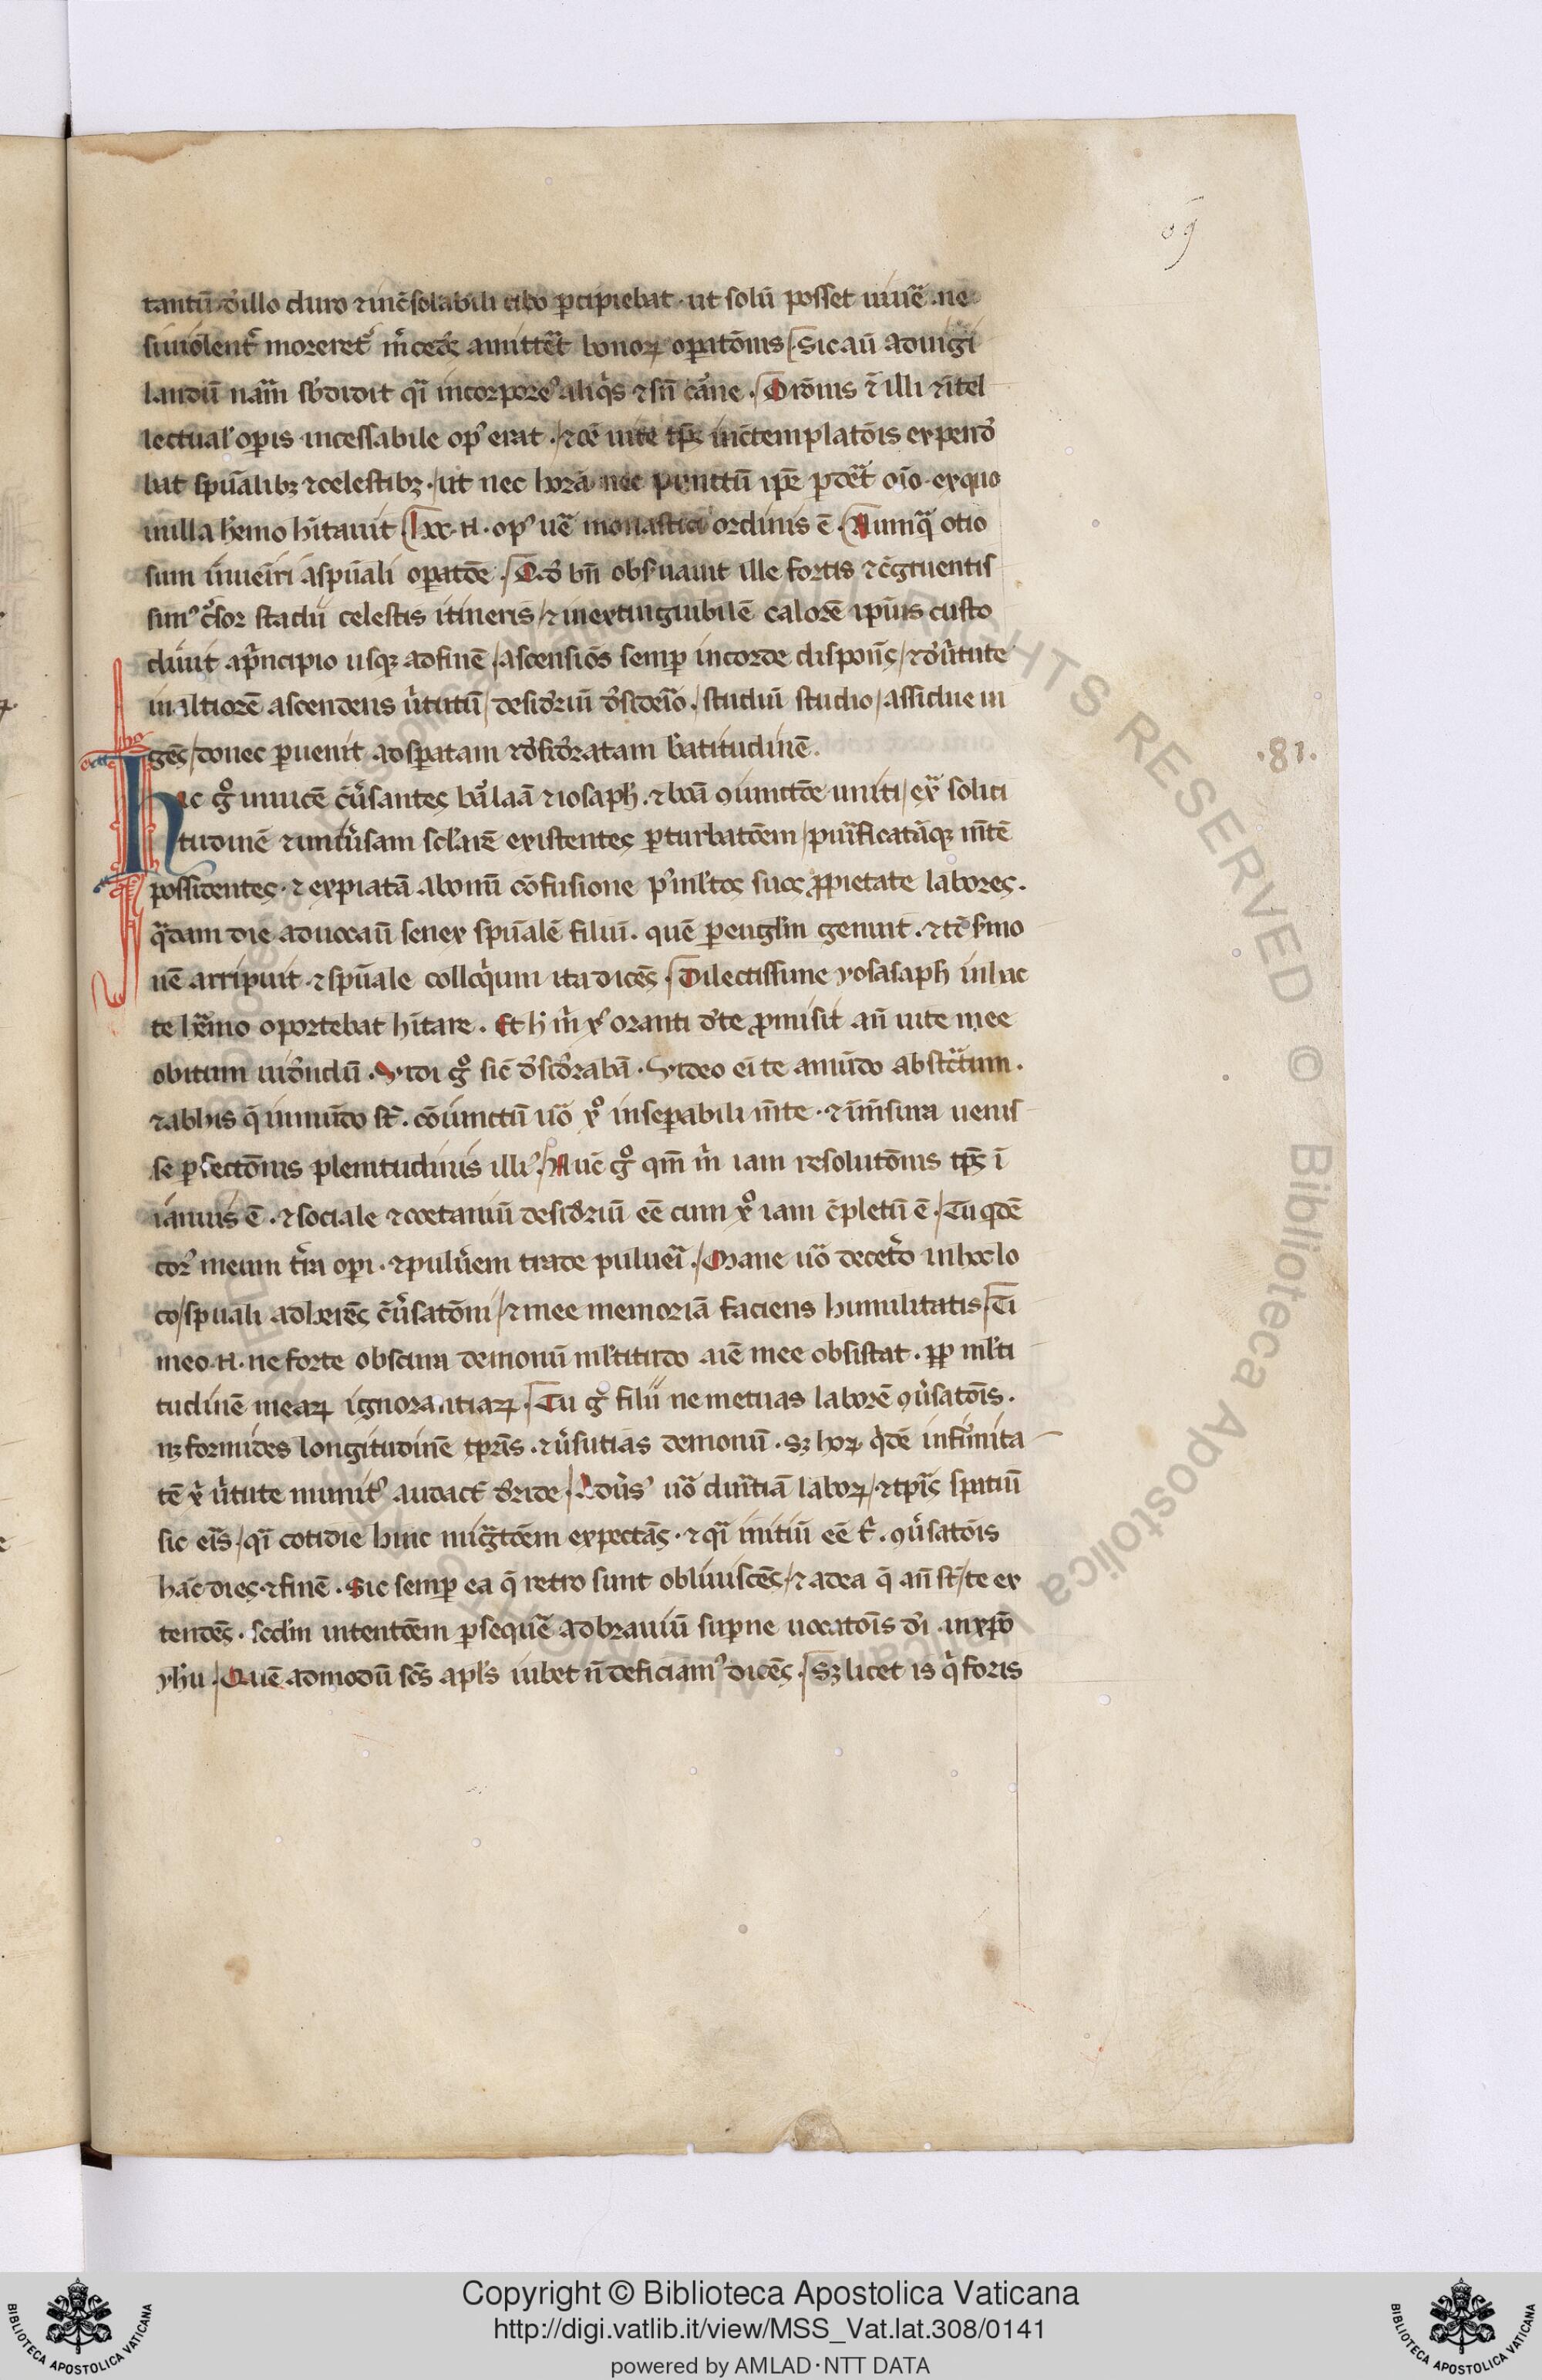 69
tantū d̓ illo duro ⁊ incōsolabili cibo ꝑcipiebat · ut solū posset uiuē͛ · ne
si uiolent̓ moreret᷑ m̓cedē amitt͛et bonoꝝ oꝑatōnis · Sic aū ad uigi
landū nām sb̓didit q̄i incorpore᷒ aliq̓s ⁊ sn̄ carne · Orōnis ē illi ⁊ ītel
lectual̓ oꝑis incessabile op᷒ erat · ⁊ oē uite tp̄s in ꝯtemplatōis expend̓
bat spūalibꝫ ⁊ celestibꝫ · ut nec horā nec punctū ip̄e ꝑd͛et oīo · ex quo
in illa h̓emo hītauit hoc · n · op᷒ ue͛ monastici ordinis ē · Numq̄ otio
sum inueīri a spūali oꝑatōe · Qd̓ bn̄ obs̓uauit ille fortis ⁊ ꝯgruentis
sim᷒ c᷑sor stadii celestis itineris / ⁊ inextinguibilē calorē ipius custo
diuit a p̓ncipio usqꝫ ad finē / ascensiōs semꝑ in corde disponēs / ⁊ d̓ u̓tute
in altiorē ascendens u̓tutū / desid̓riū d̓sid̓eīo / studiū studio / assidue iu
gēs / donec ꝑuenit ad sꝑatam ⁊ d̓sid̓ratam b̓atitudinē ·
.81.
Hac g° inuicē ꝯu̓santes ba᷑laā ⁊ iosaph · ⁊ bōa ꝯiunctōe uniti / ex͛ solici
tudinē ⁊ uniu̓sam scl̓arē existentes ꝑturbatōem / purificatāqꝫ mētē
possidentes · ⁊ expiatā ab oīn cōfusione p᷒ ml̓tos suos ꝓ pietate labores ·
q̄dam die aduocaū senex spūalē filiū · quē ꝑ euglīm genuit · ⁊ tē s̓mo
nē arripuit · ⁊ spūale colloq̓um ita dicēs · Dilectissime yosasaph in hac
te h͛emo oportebat hītare · Et h̓ m̓ xᷤ oranti d̓ te ꝓmisit an̄ uite mee
obitum uid̓ndū · Vidi g° sic d̓sid̓rabā · Video eī te a mūdo abst᷑ctum ·
⁊ ab hiis q̄ in mūdo st̄ · cōiunctū uō x° insepabili mēte · ⁊ in m̄sura uenis
se ꝑfectōnis plenitudinis illi᷒ · Nūc g° qm̄ m̓ iam resolutōnis tp̄s ī
ianuis ē · ⁊ sociale ⁊ coetaniū desid̓riū eē cum x° iam ꝯpletū ē · Tu qdē
cor᷒ meum t̓ra oꝑi · ⁊ pulu̓em trade pulueri · Mane uō decet̓o in hoc lo
co / spuali adherēs ꝯu̓satōni / ⁊ mee memoriā faciens humilitatis · Ti
meo · n · ne forte obscura demonū ml̓titudo aīe mee obsistat · ꝓp ml̓ti
tudinē mearꝝ ignorantiarꝝ · Tu g° filii ne metuas laborē ꝯu̓satōis ·
nꝫ formides longitudinē tꝑais · ⁊ u̓sutias demonū · Sꝫ hoꝝ q̓dē infirmita
tē xᷤ u̓tute munit᷒ audact̓ d̓ride · Adu̓s᷒ uō duritiā laboꝝ / ⁊ tp̄is spatiū
sic eīs / q̄i cotidie hinc mig͛tōem expectās · ⁊ q̄i initiū eē t̓ · ꝯu̓satōis
hāc dies · ⁊ finē · Sic semꝑ ea q̄ retro sunt obliuiscēs / ⁊ ad ea q̄ an̄ st̄ / te ex
tendēs · sed̓m intentōem ꝑsequē͛ ad brauiū suꝑne uocatōis d̓i in xp̄o
yh̓u · Quē admodū scs̄ apl̓s iubet n̄ deficiam᷒ dicēs · Sꝫ licet is q̓ foris
ALL RIGHTS RESERVED © Biblioteca Apostolica Vaticana
Copyright © Biblioteca Apostolica Vaticana
http://digi.vatlib.it/view/MSS_Vat.lat.308/0141
powered by AMLAD·NTT DATA
BIBLIOTECA APOSTOLICA VATICANA
BIBLIOTECA APOSTOLICA VATICANA